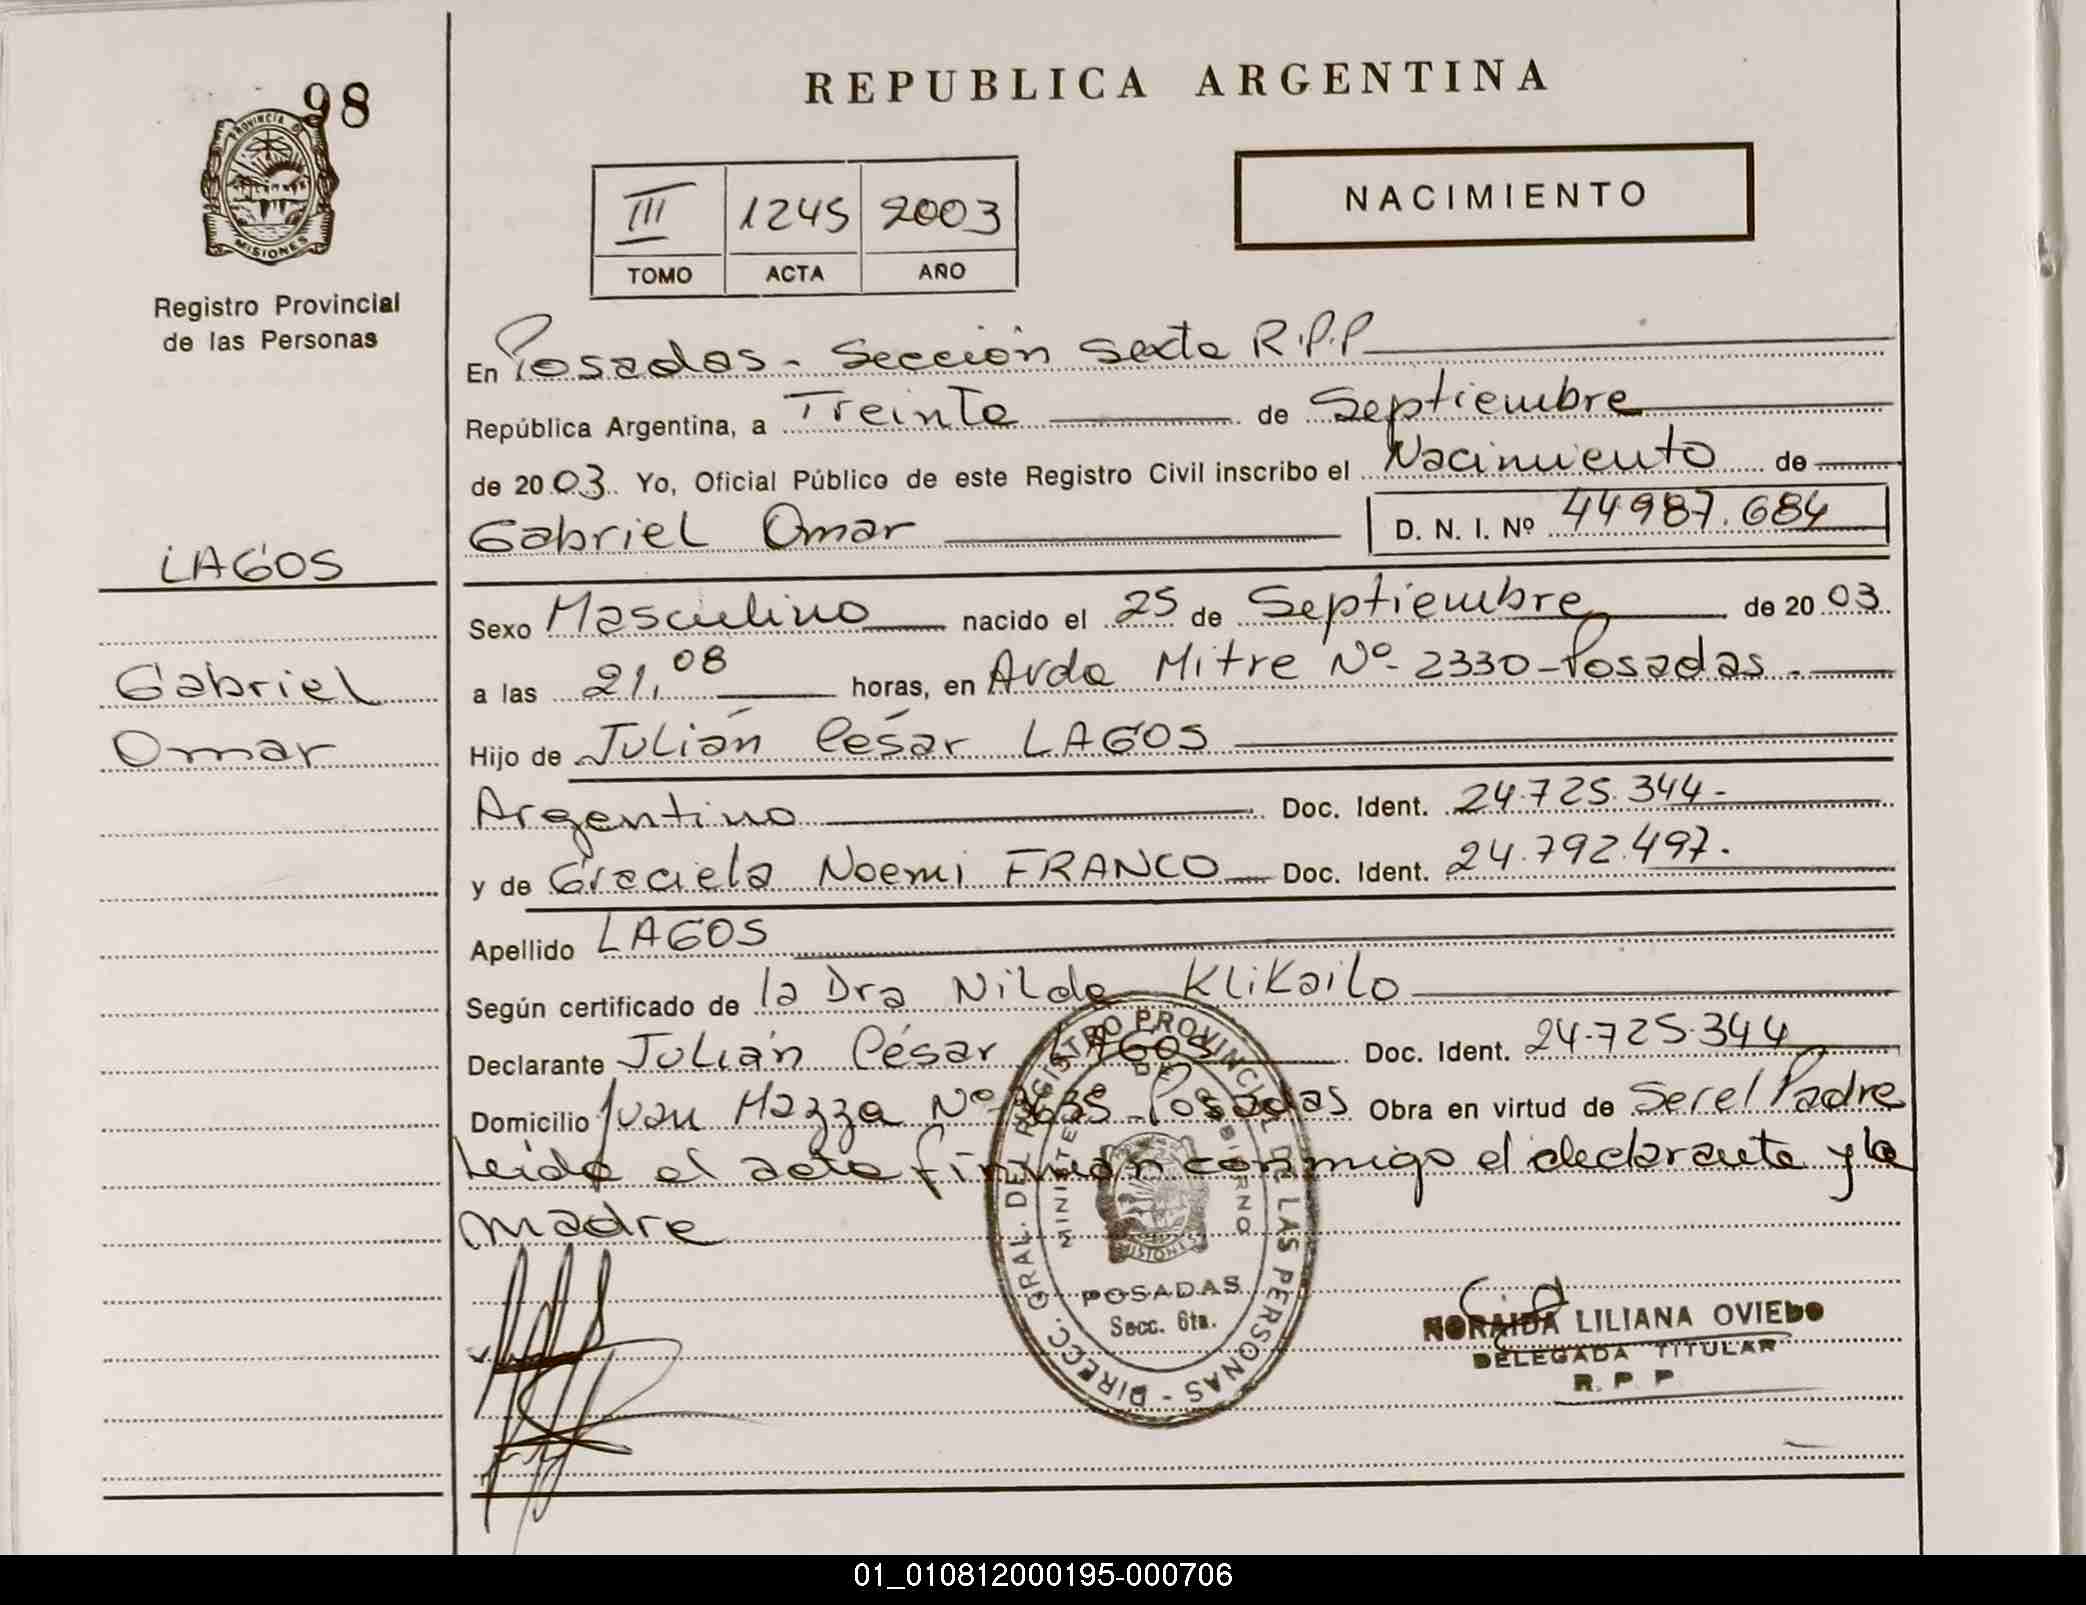 98
PROVINCIA D
MISIONES
Registro Provincial
de las Personas
LAGOS
Gabriel
Omar
REPUBLICA ARGENTINA
III 1245 2003
TOMO ACTA AÑO
NACIMIENTO
En Posadas - Sección sexta R.P.P
República Argentina, a Treinta de Septiembre
de 2003. Yo, Oficial Público de este Registro Civil inscribo el Nacimiento de
Gabriel Omar D. N. I. Nº 44987.684
Sexo Masculino nacido el 25 de Septiembre de 2003
a las 21,08 horas, en Avda Mitre Nº 2330-Posadas.
Hijo de Julián César LAGOS
Argentino Doc. Ident. 24.725.344-
y de Graciela Noemi FRANCO Doc. Ident. 24.792.497.
Apellido LAGOS
Según certificado de la Dra Nilda Klikailo
Declarante Julián César LAGOS Doc. Ident. 24.725.344
Domicilio Juan Mazza Nº Posadas Obra en virtud de Ser el Padre
Leída el acta firman conmigo el declarante y la
madre
DIRECC. GRAL. DEL REGISTRO PROVINCIAL DE LAS PERSONAS -
MINISTE DE GOBIERNO
MISIONES
POSADAS
Secc. 6ta.
NORAIDA LILIANA OVIEDO
DELEGADA TITULAR
R. P P
01_010812000195-000706